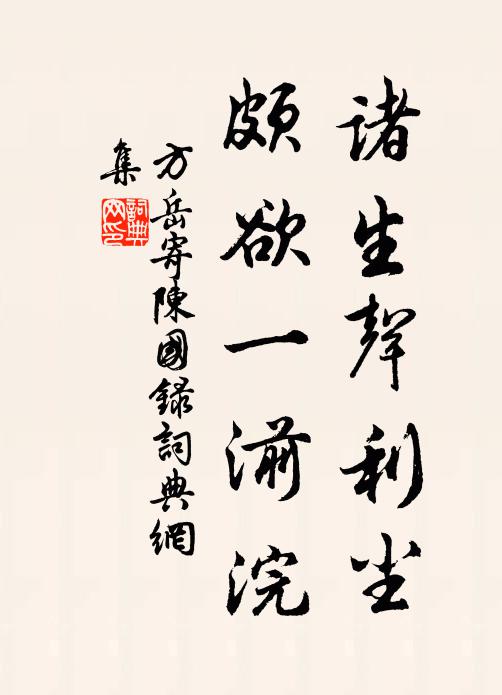 諸生聲利尘
頗欲一湔浣
方岳寄陳國録詞典網
集
詞典網印